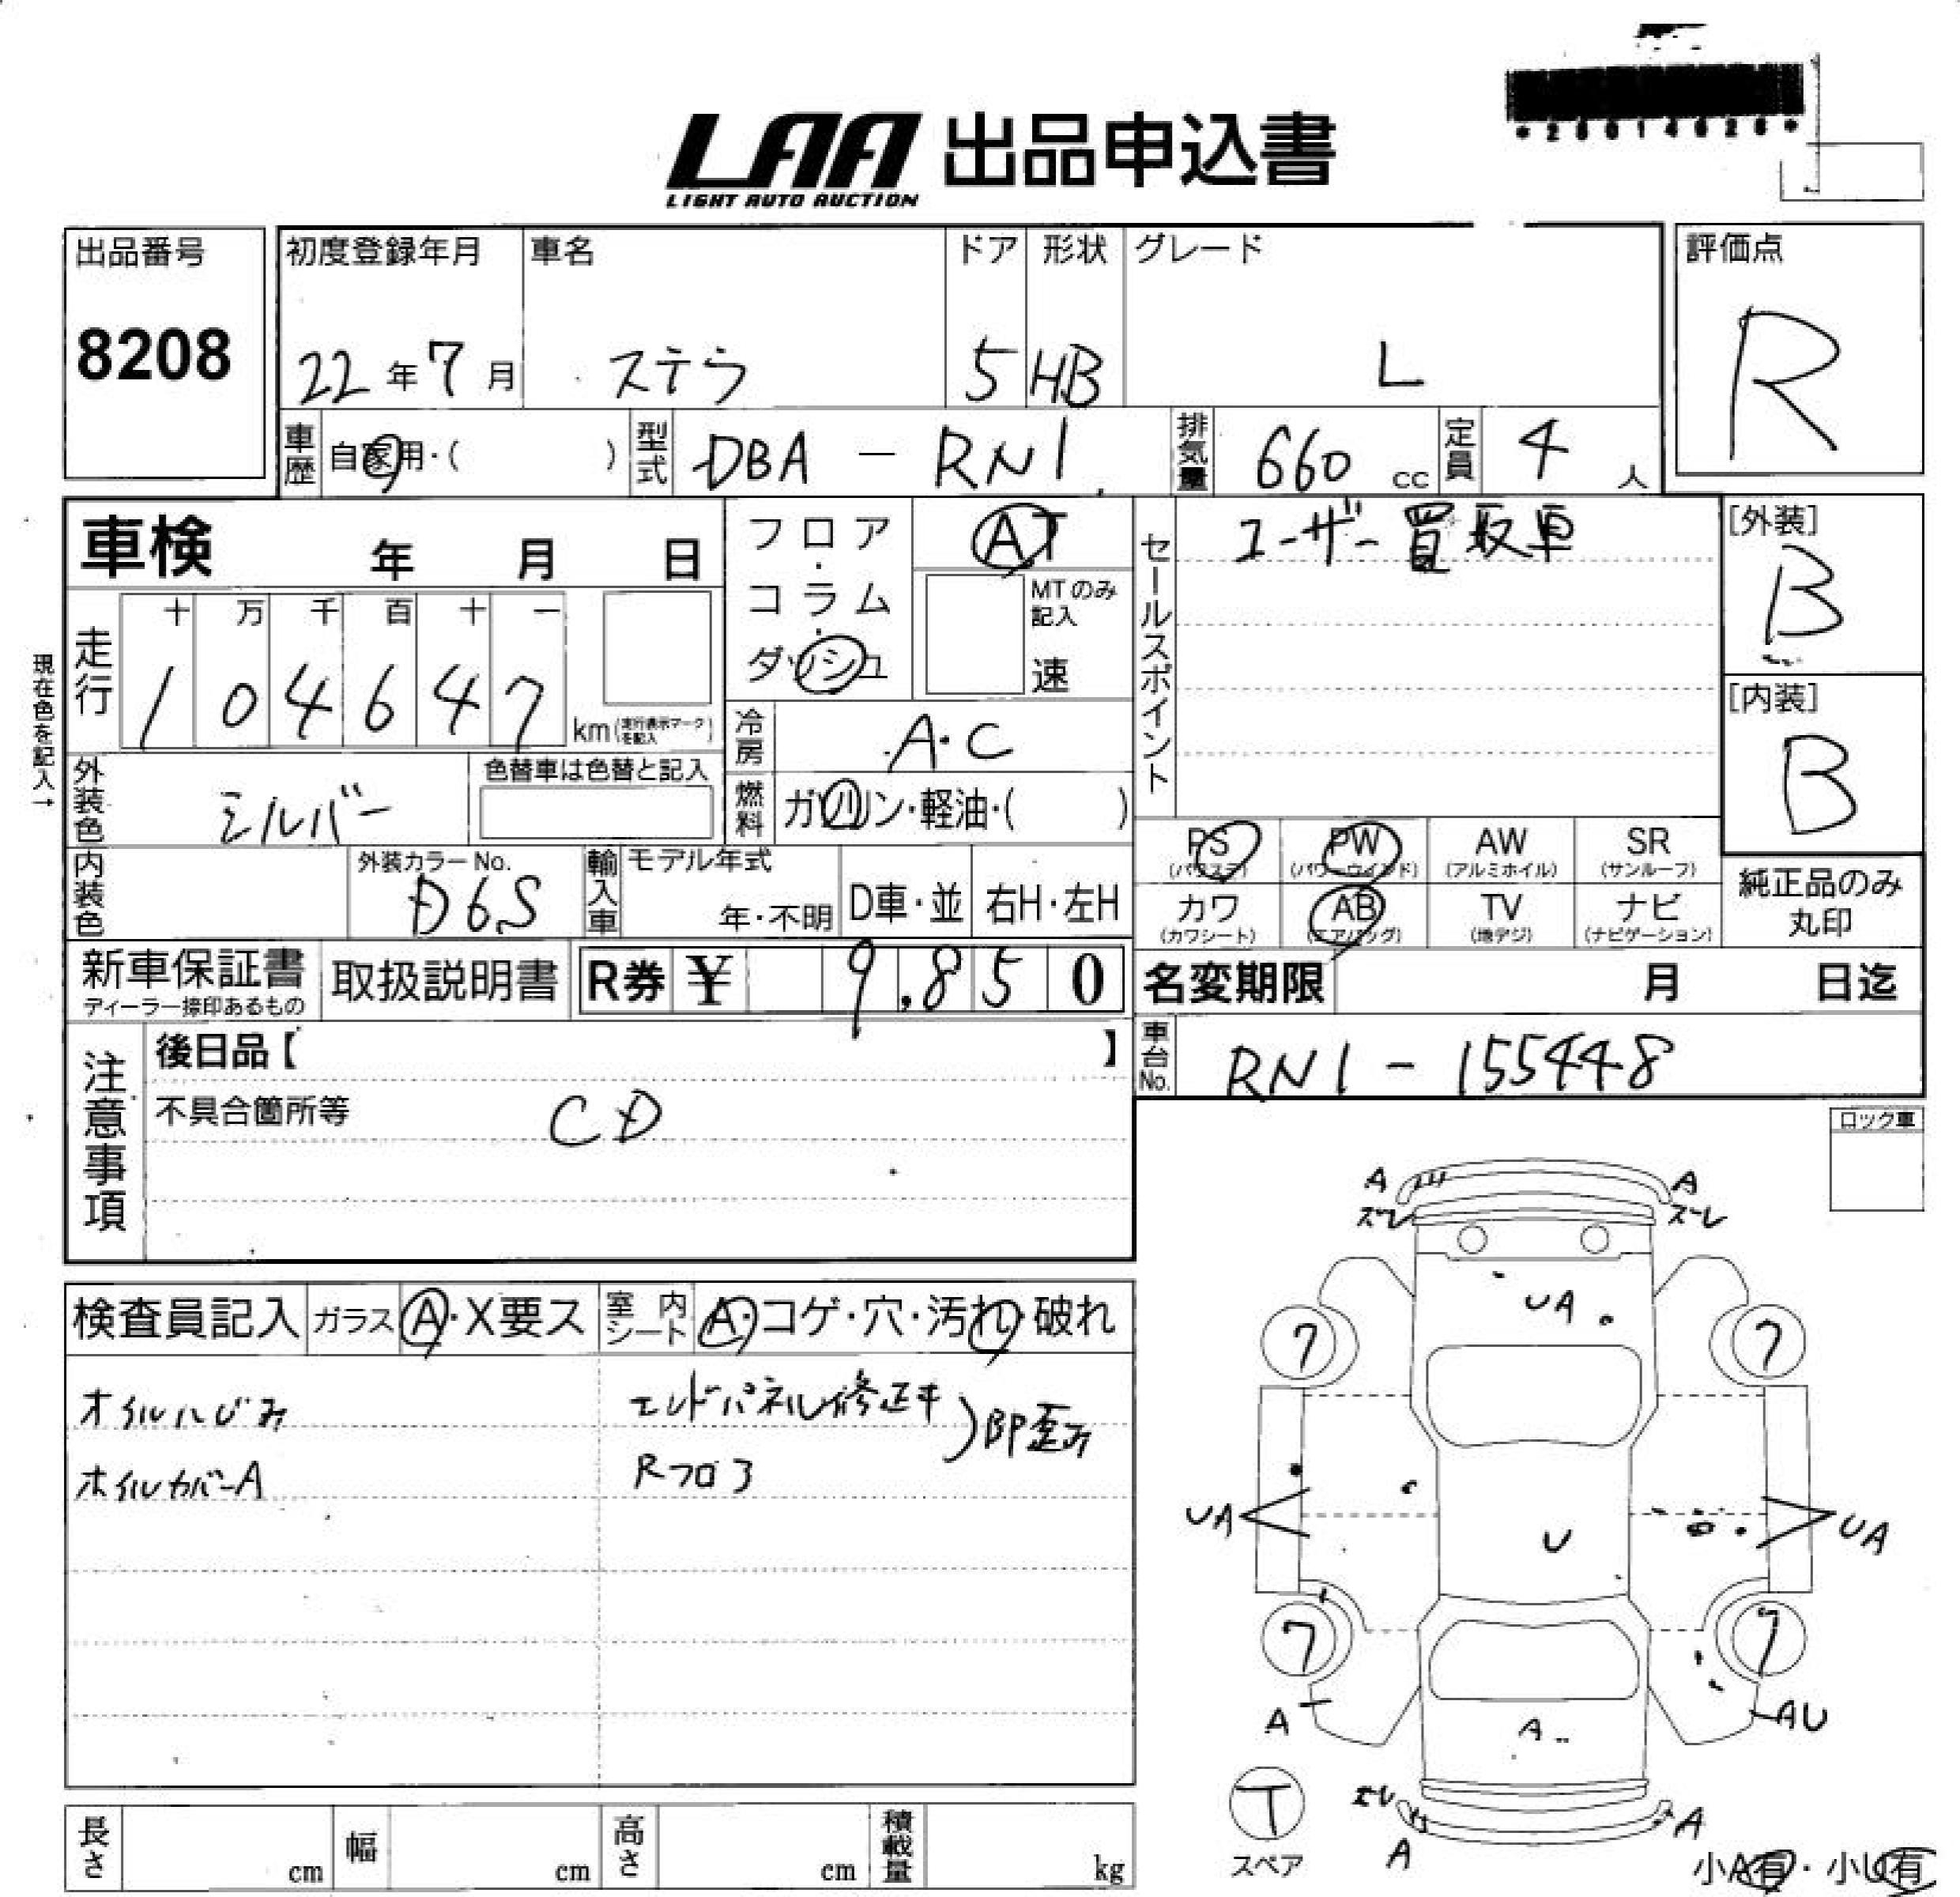 LAA 出品申込書
LIGHT AUTO AUCTION
出品番号
8208
初度登録年月
22年7月
車名
ステラ
ドア
5
形状
HB
グレード
L
評価点
R
車歴 自家用・( )
型式 DBA - RN1
排気量 660 cc
定員 4 人
車検 年 月 日
走行 十 万 千 百 十 一
1 0 4 6 4 7 km (走行表示マークを記入)
現在色を記入→
外装色 シルバー
色替車は色替と記入
内装色
外装カラーNo.
D6S
輸入車 モデル年式
年・不明
D車・並
右H・左H
フロア・コラム・ダッシュ
AT
MTのみ記入
速
冷房 A・C
燃料 ガソリン・軽油・( )
セールスポイント
ユーザー買取車
[外装]
B
[内装]
B
PS (パワステ)
PW (パワーウインド)
AW (アルミホイル)
SR (サンルーフ)
カワ (カワシート)
AB (エアバッグ)
TV (地デジ)
ナビ (ナビゲーション)
純正品のみ
丸印
新車保証書
ディーラー捺印あるもの
取扱説明書
R券 ¥ 9,850
名変期限 月 日迄
車台No. RN1 - 155448
注意事項
後日品【 】
不具合箇所等
CD
ロック車
検査員記入
ガラス A・X要ス
室内シート A・コゲ・穴・汚れ・破れ
オイルにじみ
ホイルカバーA
エンドパネル修正キ
Rフロア
)BP歪み
A
A
ズレ
ズレ
UA
7
7
UA
U
UA
7
7
A
A
AU
ズレ
A
A
T
スペア
小A有・小U有
長さ cm
幅 cm
高さ cm
積載量 kg